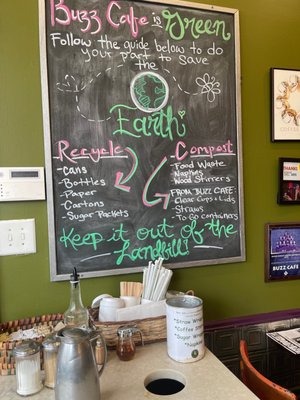 Buzz Cafe is Green
Follow the guide below to do
your part to save
the
Earth
Recycle
-Cans
-Bottles
-Paper
-Cartons
-Sugar Packets
Compost
-Food Waste
-Napkins
-Wood Stirrers
FROM BUZZ CAFE:
-Clear Cups & Lids
-Straws
-To Go containers
Keep it out of the
Landfill!
BUZZ CAFE